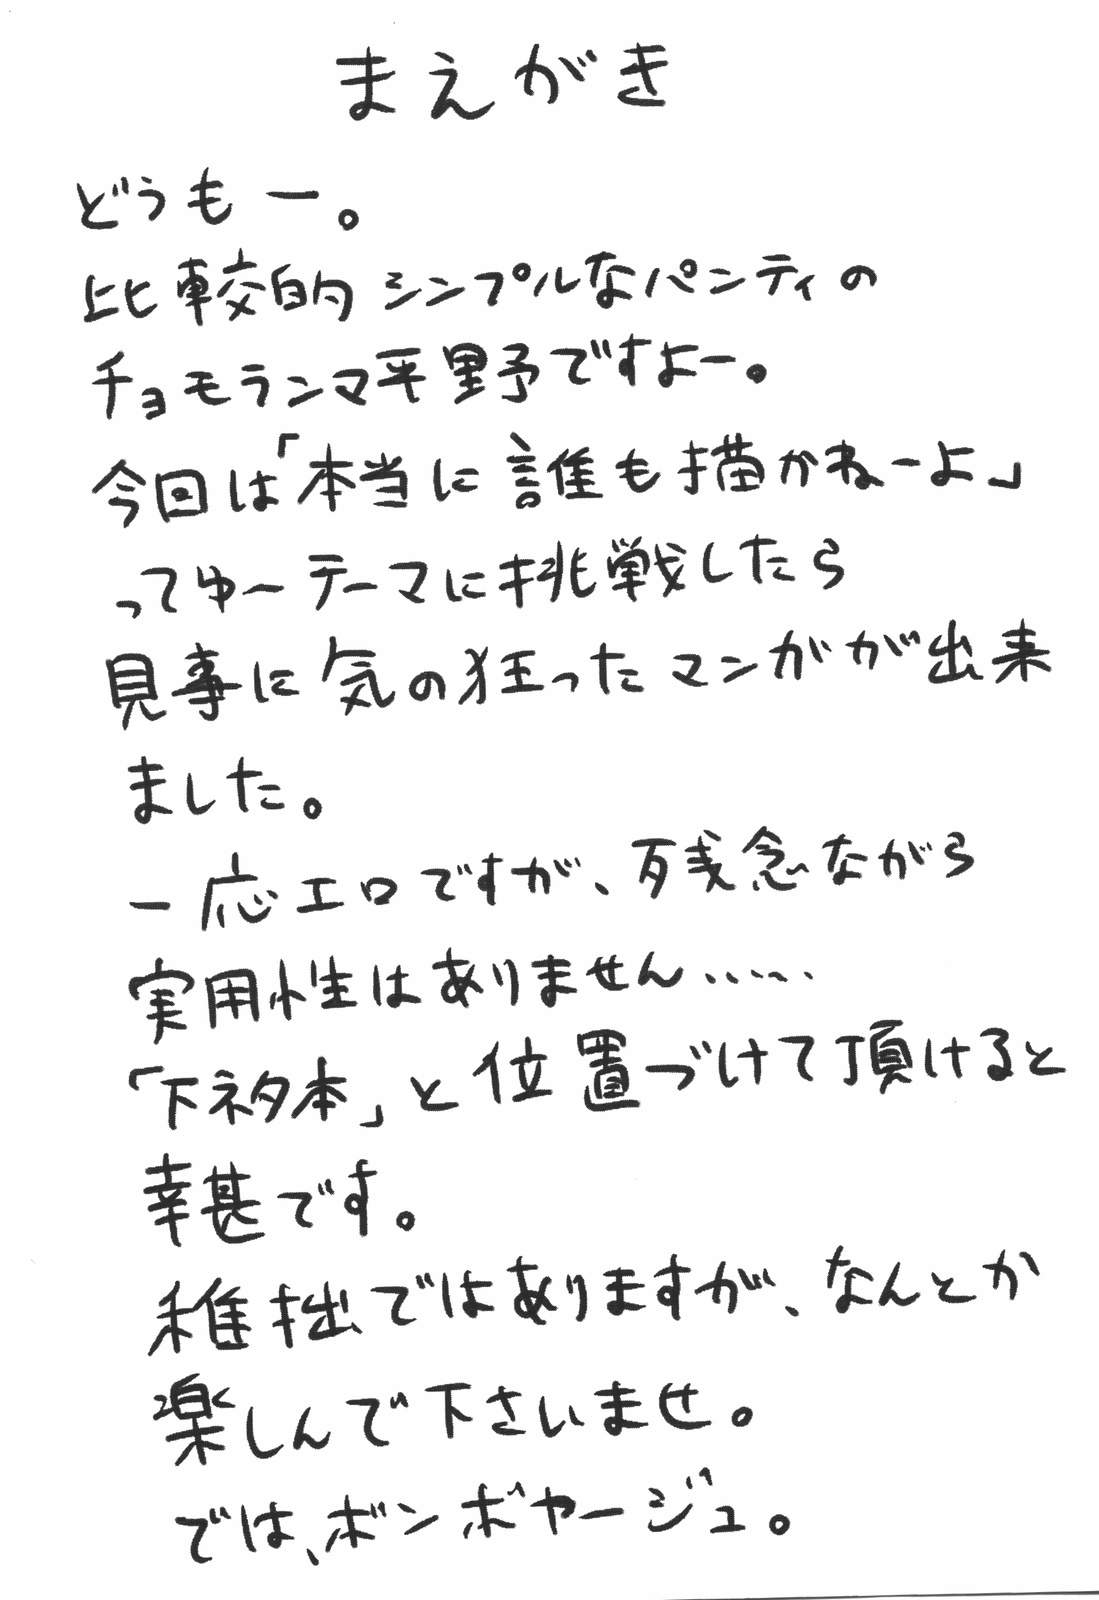 まえがき
どうもー。
比較的シンプルなパンティの
チョモランマ平野予ですよー。
今回は「本当に誰も描かねーよ」
ってゆーテーマに挑戦したら
見事に気の狂ったマンガが出来
ました。
一応エロですが、残念ながら
実用性はありません……
「下ネタ本」と位置づけて頂けると
幸甚です。
稚拙ではありますが、なんとか
楽しんで下さいませ。
では、ボンボヤージュ。